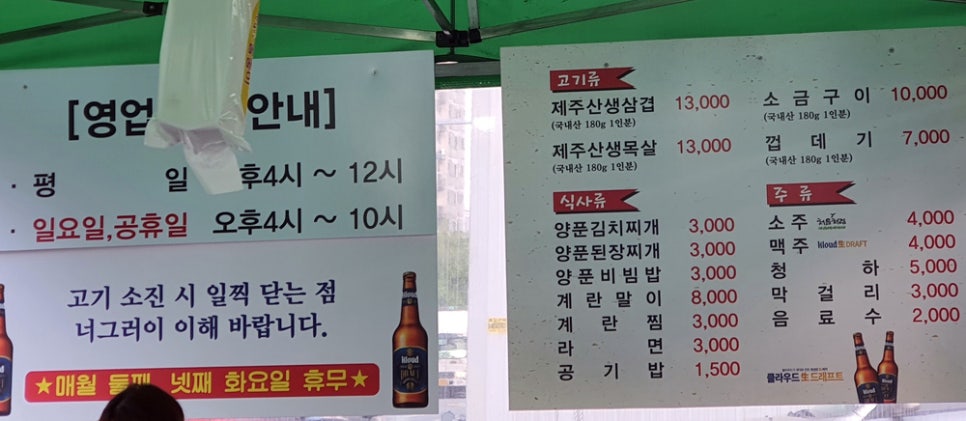 [영업 안내]
· 평 일 후4시 ~ 12시
· 일요일,공휴일 오후4시 ~ 10시
고기 소진 시 일찍 닫는 점
너그러이 이해 바랍니다.
★매월 둘째 넷째 화요일 휴무★
고기류
제주산생삼겹 13,000
(국내산 180g 1인분)
제주산생목살 13,000
(국내산 180g 1인분)
소금구이 10,000
(국내산 180g 1인분)
껍데기 7,000
(국내산 180g 1인분)
식사류
양푼김치찌개 3,000
양푼된장찌개 3,000
양푼비빔밥 3,000
계란말이 8,000
계란찜 3,000
라면 3,000
공기밥 1,500
주류
소주 처음처럼 4,000
맥주 Kloud生DRAFT 4,000
청하 5,000
막걸리 3,000
음료수 2,000
클라우드生드래프트
Kloud